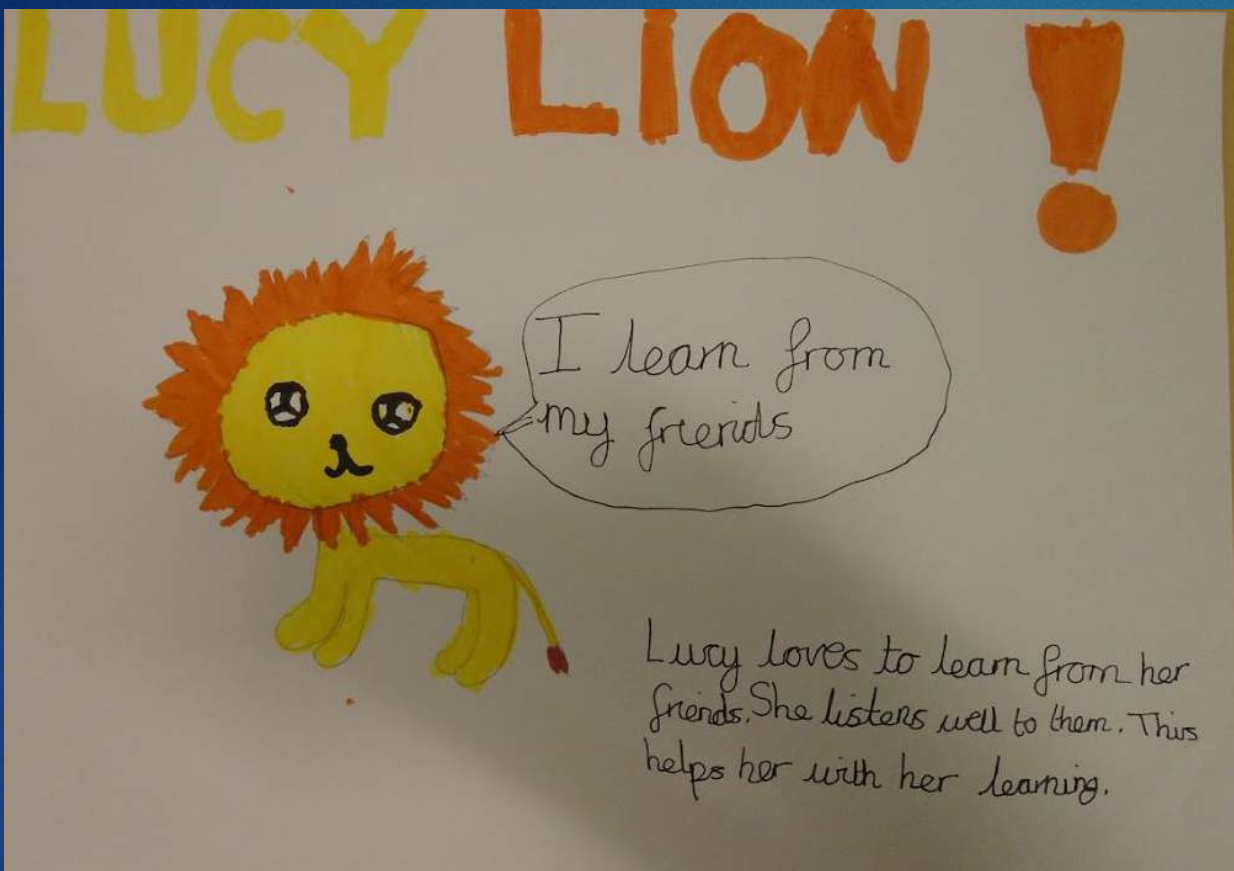 LUCY LION !
I learn from
my friends
Lucy loves to learn from her
friends. She listens well to them. This
helps her with her learning.